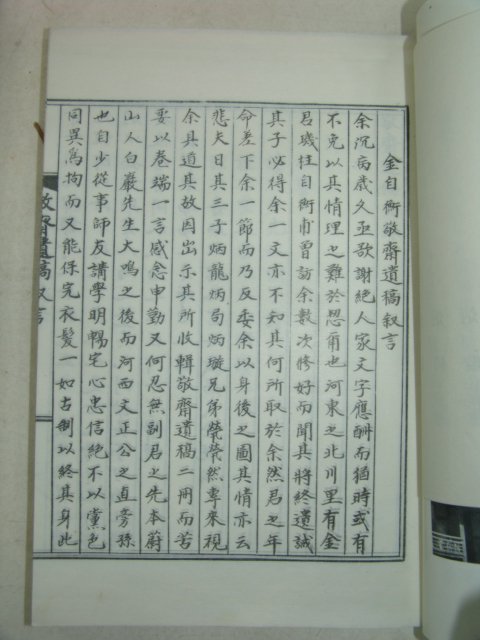 金自衡敬齋遺稿叙言
余沉病歲久亟欲謝絕人家文字應酬而猶時或有
不免以其情理之難於恝爾也河東之北川里有金
君璣柱自衡甫曾訪余數次修好而聞其將終遺誡
其子必得余一文亦不知其何所取於余然君之年
命差下余一節而乃反委余以身後之圖其情亦云
悲夫日其三子炳龍炳局炳璇兄弟煢煢然專來視
余具道其故因出示其所收輯敬齋遺稿二冊而苦
要以卷端一言感念申勤又何忍無副君之先本蔚
山人白巖先生大鳴之後而河西文正公之直旁孫
也自少從事師友講學明暢宅心忠信絕不以黨色
同異爲拘而又能保完衣髮一如古制以終其身此
敬齋遺稿叙言